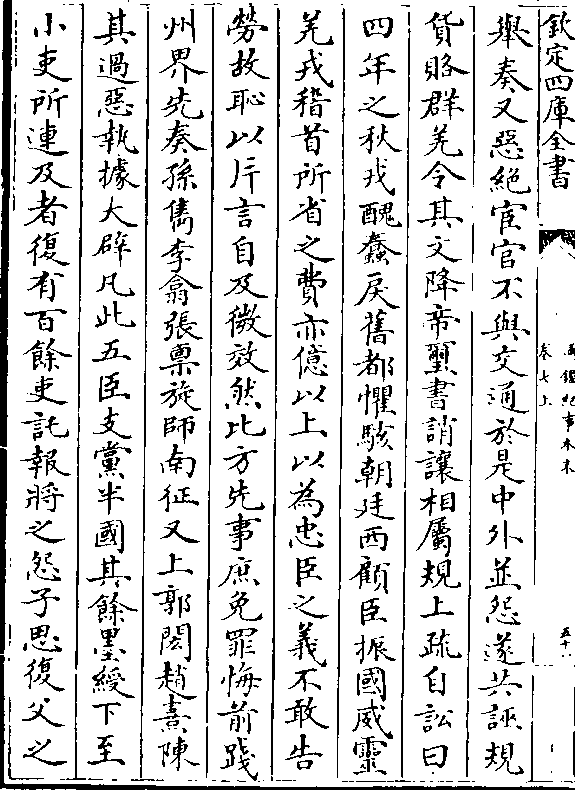 欽定四庫全書
通鑑紀事本末
卷七上
五十一
舉奏又惡絶宦官不與交通於是中外並怨遂共誣規
貨賂群羌令其文降帝璽書誚讓相屬規上疏自訟曰
四年之秋戎醜蠢戾舊都懼駭朝廷西顧臣振國威靈
羌戎稽首所省之費亦億以上以為忠臣之義不敢告
勞故恥以片言自及微效然比方先事庶免罪悔前踐
州界先奏孫儁李翕張禀旋師南征又上郭閎趙熹陳
其過惡執據大辟凡此五臣支黨半國其餘墨綬下至
小吏所連及者復有百餘吏託報將之怨子思復父之